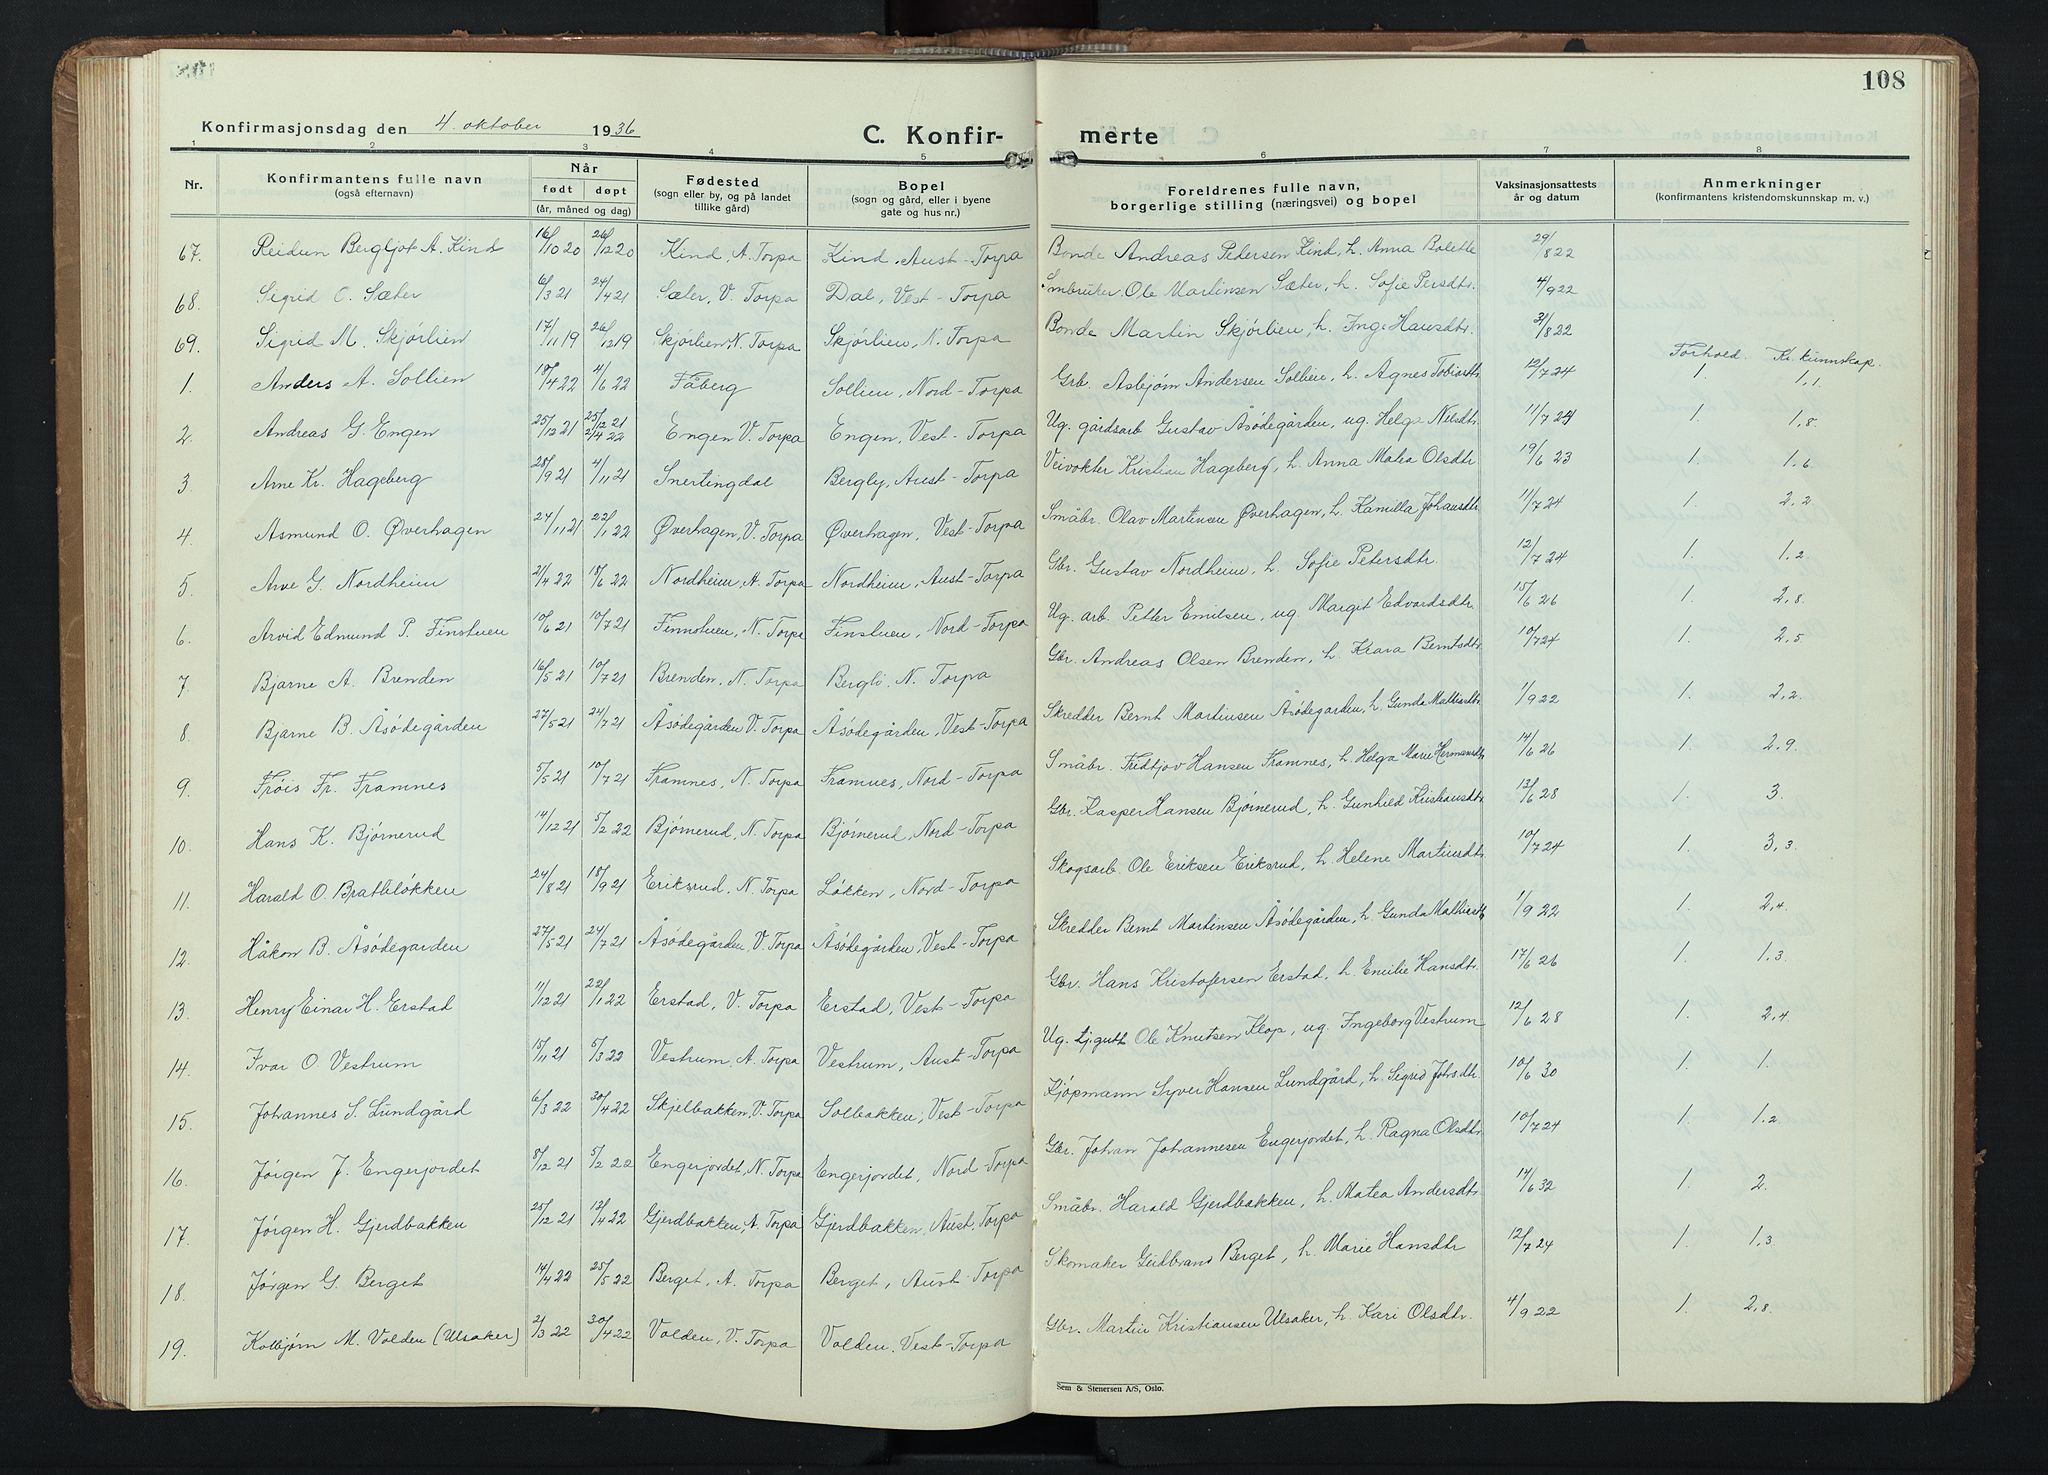 108
Konfirmasjonsdag den 4. oktober 1936
C. Konfirmerte
1 2 3 4 5 6 7 8
Nr. Konfirmantens fulle navn (også efternavn) Når født døpt (år, måned og dag) Fødested (sogn eller by, og på landet tillike gård) Bopel (sogn og gård, eller i byene gate og hus nr.) Foreldrenes fulle navn, borgerlige stilling (næringsvei) og bopel Vaksinasjonsattests år og datum Anmerkninger (konfirmantens kristendomskunnskap m. v.)
67. Reidun Bergljot A. Kind 16/10 20 26/12 20 Kind, A. Torpa Kind, Aust-Torpa Bonde Andreas Pedersen Kind, h. Anna Bolette 29/8 22
68. Sigrid O. Sæter 6/3 21 24/4 21 Sæter, V. Torpa Dal, Vest-Torpa Småbruker Ole Martinsen Sæter, h. Sofie Persdtr. 4/9 22
69. Sigrid M. Skjørlien 17/11 19 26/12 19 Skjørlien, N. Torpa Skjørlien, N. Torpa Bonde Martin Skjørlien, h. Inge Hansdtr. 31/8 22
Forhold. Kr. kunnskap.
1. Anders A. Sollien 18/4 22 4/6 22 Fåberg Sollien, Nord-Torpa Grb. Asbjørn Andersen Sollien, h. Agnes Tobiasdtr. 12/7 24 1 1,1.
2. Andreas G. Engen 25/12 21 25/12 21 2/4 22 Engen V. Torpa Engen, Vest-Torpa Ug. gårdsarb Gustav Åsødegården, ug. Helga Nilsdtr. 11/7 24 1. 1,8.
3. Arne Kr. Hageberg 28/9 21 4/11 21 Snertingdal Bergly, Aust-Torpa Veivokter Kristian Hageberg, h. Anna Matea Olsdtr 19/6 23 1. 1,6.
4. Asmund O. Øverhagen 24/11 21 22/1 22 Øverhagen, V. Torpa Øverhagen, Vest-Torpa Småbr. Olav Martinsen Øverhagen, h. Kamilla Johansdtr 11/7 24 1. 2,2
5. Arve G. Nordheim 2/4 22 18/6 22 Nordheim, A. Torpa Nordheim, Aust-Torpa Gbr. Gustav Nordheim, h. Sofie Petersdtr. 12/7 24 1. 1,2
6. Arvid Edmund P. Finstuen 10/6 21 10/7 21 Finnstuen, N. Torpa Finstuen, Nord-Torpa Ug. arb. Petter Emilsen, ug Margit Edvardsdtr. 15/6 26 1. 2,8.
7. Bjarne A. Brenden 16/5 21 10/7 21 Brenden, N. Torpa Bergli, N. Torpa Gbr. Andreas Olsen Brenden, h. Klara Berntsdtr 10/7 24 1. 2,5
8. Bjarne B. Åsødegården 27/5 21 24/7 21 Åsødegården V. Torpa Åsødegården, Vest-Torpa Skredder Bernt Martinsen Åsødegarden, h. Gunda Mathisdtr 1/9 22 1. 2,2.
9. Frois Fr. Framnes 5/5 21 10/7 21 Framnes, N. Torpa Framnes, Nord-Torpa Småbr. Fridtjov Hansen Framnes, h. Helga Marie Hermansdtr 14/6 26 1. 2,9.
10. Hans K. Bjørnerud 14/12 21 5/2 22 Bjørnerud, N. Torpa Bjørnerud, Nord-Torpa Gbr. Kasper Hansen Bjørnerud, h. Gunhild Kristiansdtr 12/6 28 1. 3.
11. Harald O. Bratbløkken 24/8 21 18/9 21 Eriksrud, N. Torpa Løkken, Nord-Torpa Skogsarb. Ole Eriksen Eriksrud, h. Helene Martinsdtr. 10/7 24 1. 3,3.
12. Håkon B. Åsødegarden 27/5 21 24/7 21 Åsødegården, V. Torpa Åsødegården, Vest-Torpa Skredder Bernt Martinsen Åsødegården, h. Gunda Mathisdtr 1/9 22 1. 2,4.
13. Henry Einar H. Erstad 11/12 21 22/1 22 Erstad, V. Torpa Erstad, Vest-Torpa Gbr. Hans Kristofersen Erstad, h. Emilie Hansdtr. 17/6 26 1. 1,3.
14. Ivar O. Vestrum 15/11 21 5/3 22 Vestrum, A. Torpa Vestrum, Aust-Torpa Ug. tj.gutt Ole Knutsen Klop, ug. Ingeborg Vestrum 12/6 28 1. 2,4
15. Johannes S. Lundgård 6/3 22 30/4 22 Skjelbakken, V. Torpa Solbakken, Vest-Torpa Kjøpmann Syver Hansen Lundgård, h. Sigrid Johsdtr. 10/6 30 1. 1.
16. Jørgen J. Engerjordet 8/12 21 5/2 22 Engerjordet, N. Torpa Engerjordet, Nord-Torpa Gbr. Johan Johannesen Engerjordet, h. Ragna Olsdtr 10/7 24 1. 1,2
17. Jørgen H. Gjerdbakken 25/12 21 12/4 22 Gjerdbakken, A. Torpa Gjerdbakken, Aust-Torpa Småbr. Harald Gjerdbakken, h. Matea Andersdtr. 14/6 32 1. 2.
18. Jørgen G. Berget 14/4 22 25/5 22 Berget, A. Torpa Berget, Aust-Torpa Skomaker Gudbrand Berget, h. Marie Hansdtr 12/7 24 1. 1,3
19. Kolbjørn M. Volden (Ulsaker) 2/3 22 30/4 22 Volden, V. Torpa Volden, Vest-Torpa Gbr. Martin Kristiansen Ulsaker, h. Kari Olsdtr. 4/9 22 1. 2,8.
Sem & Stenersen A/S, Oslo.